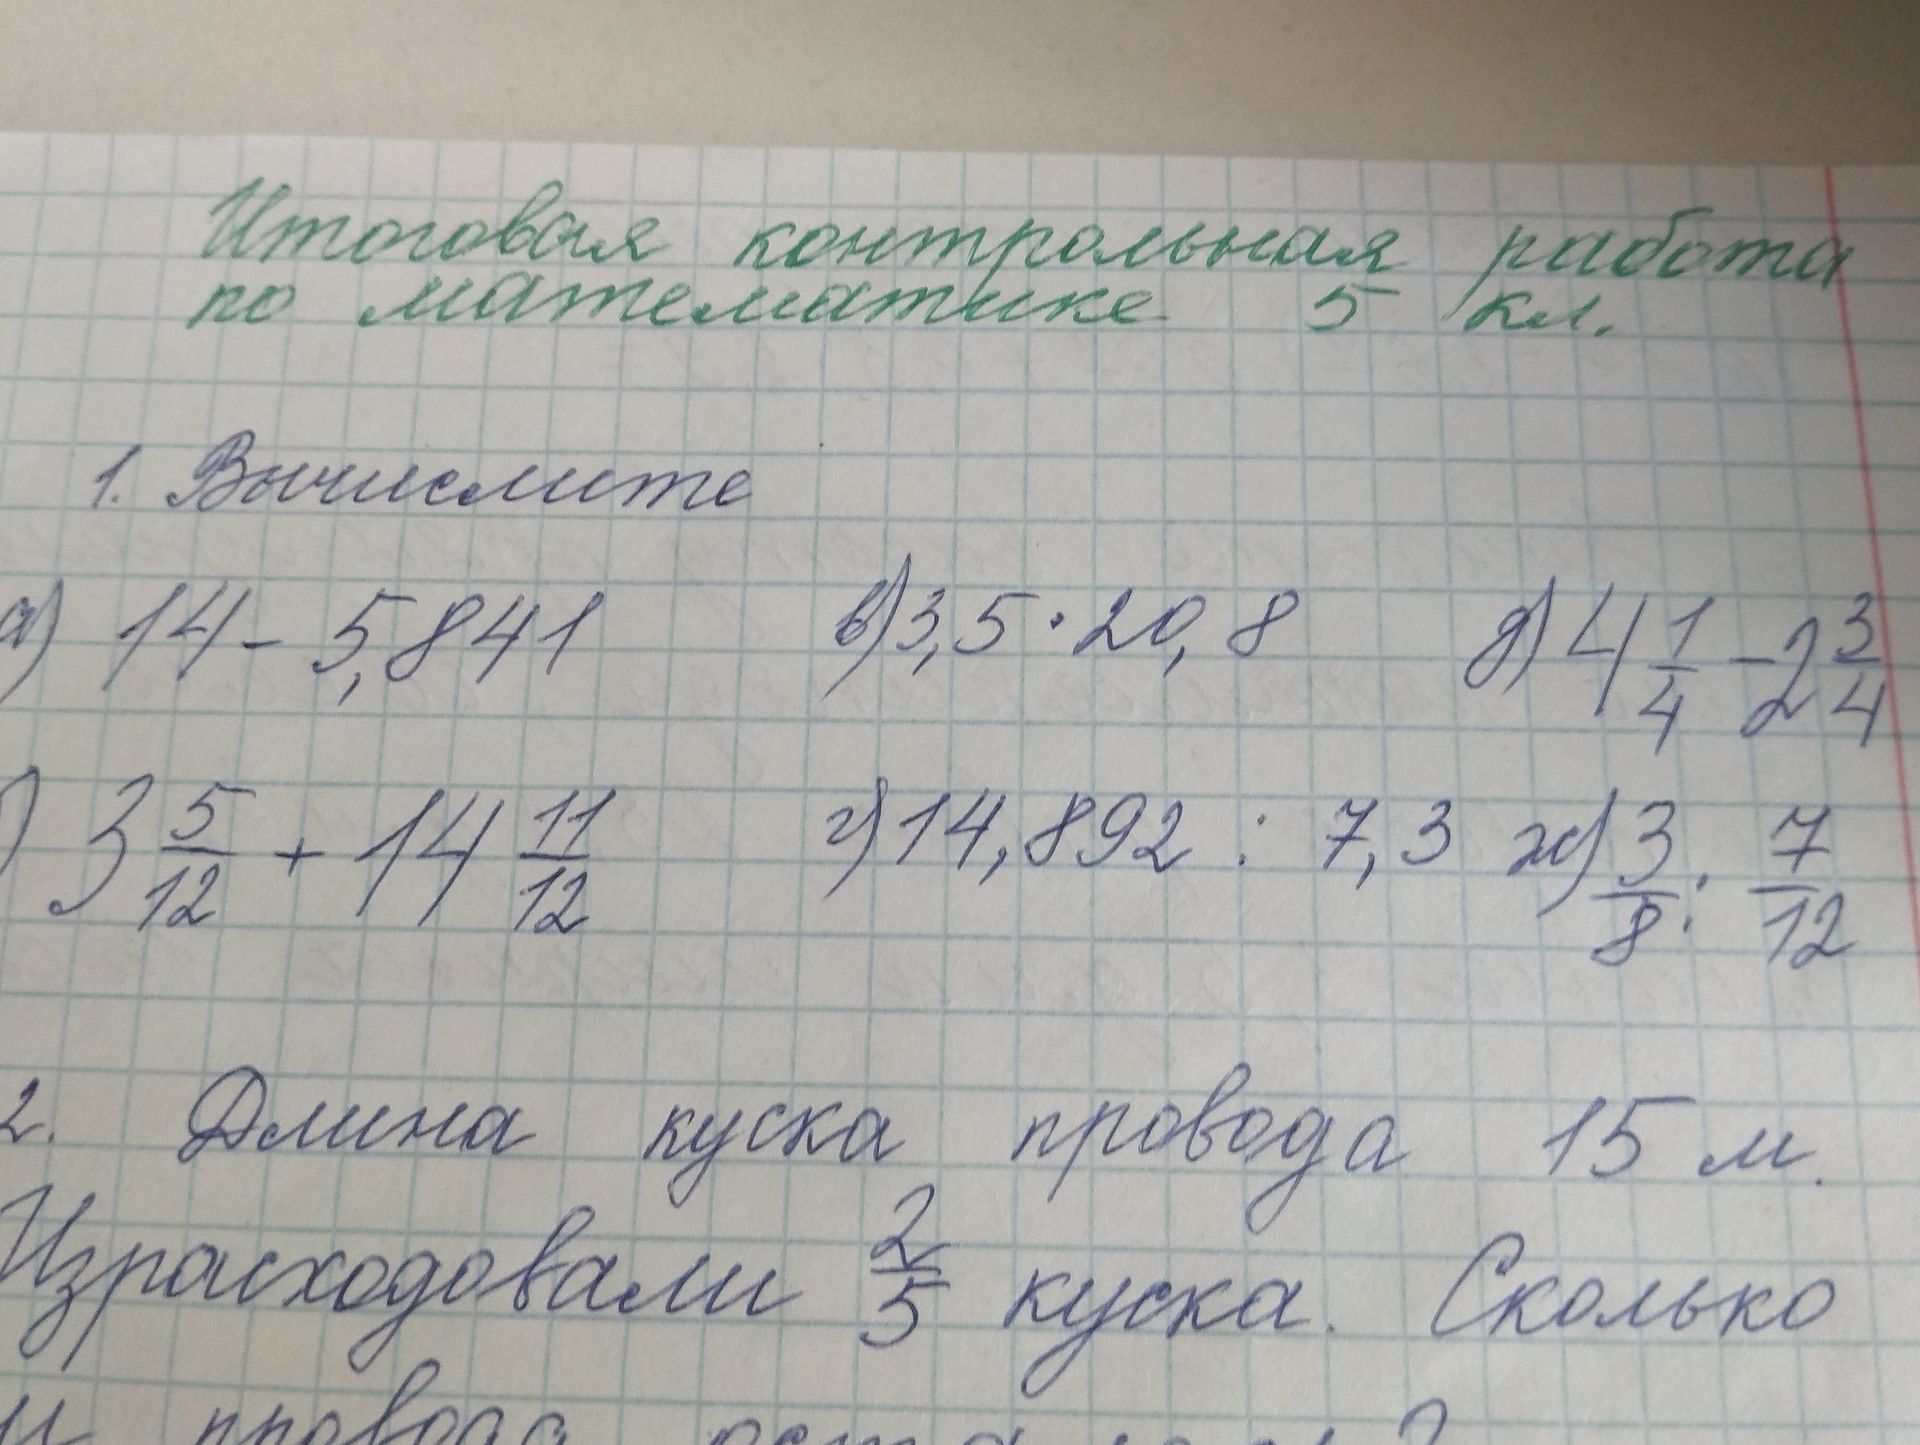 Итоговая контрольная работа
по математике 5 кл.
1. Вычислите
а) 14 - 5,841 в) 3,5 · 20,8 д) 4 1/4 - 2 3/4
) 3 5/12 + 14 11/12 г) 14,892 : 7,3 ж) 3/8 : 7/12
2. Длина куска провода 15 м.
Израсходовали 2/5 куска. Сколько
м провода осталось?